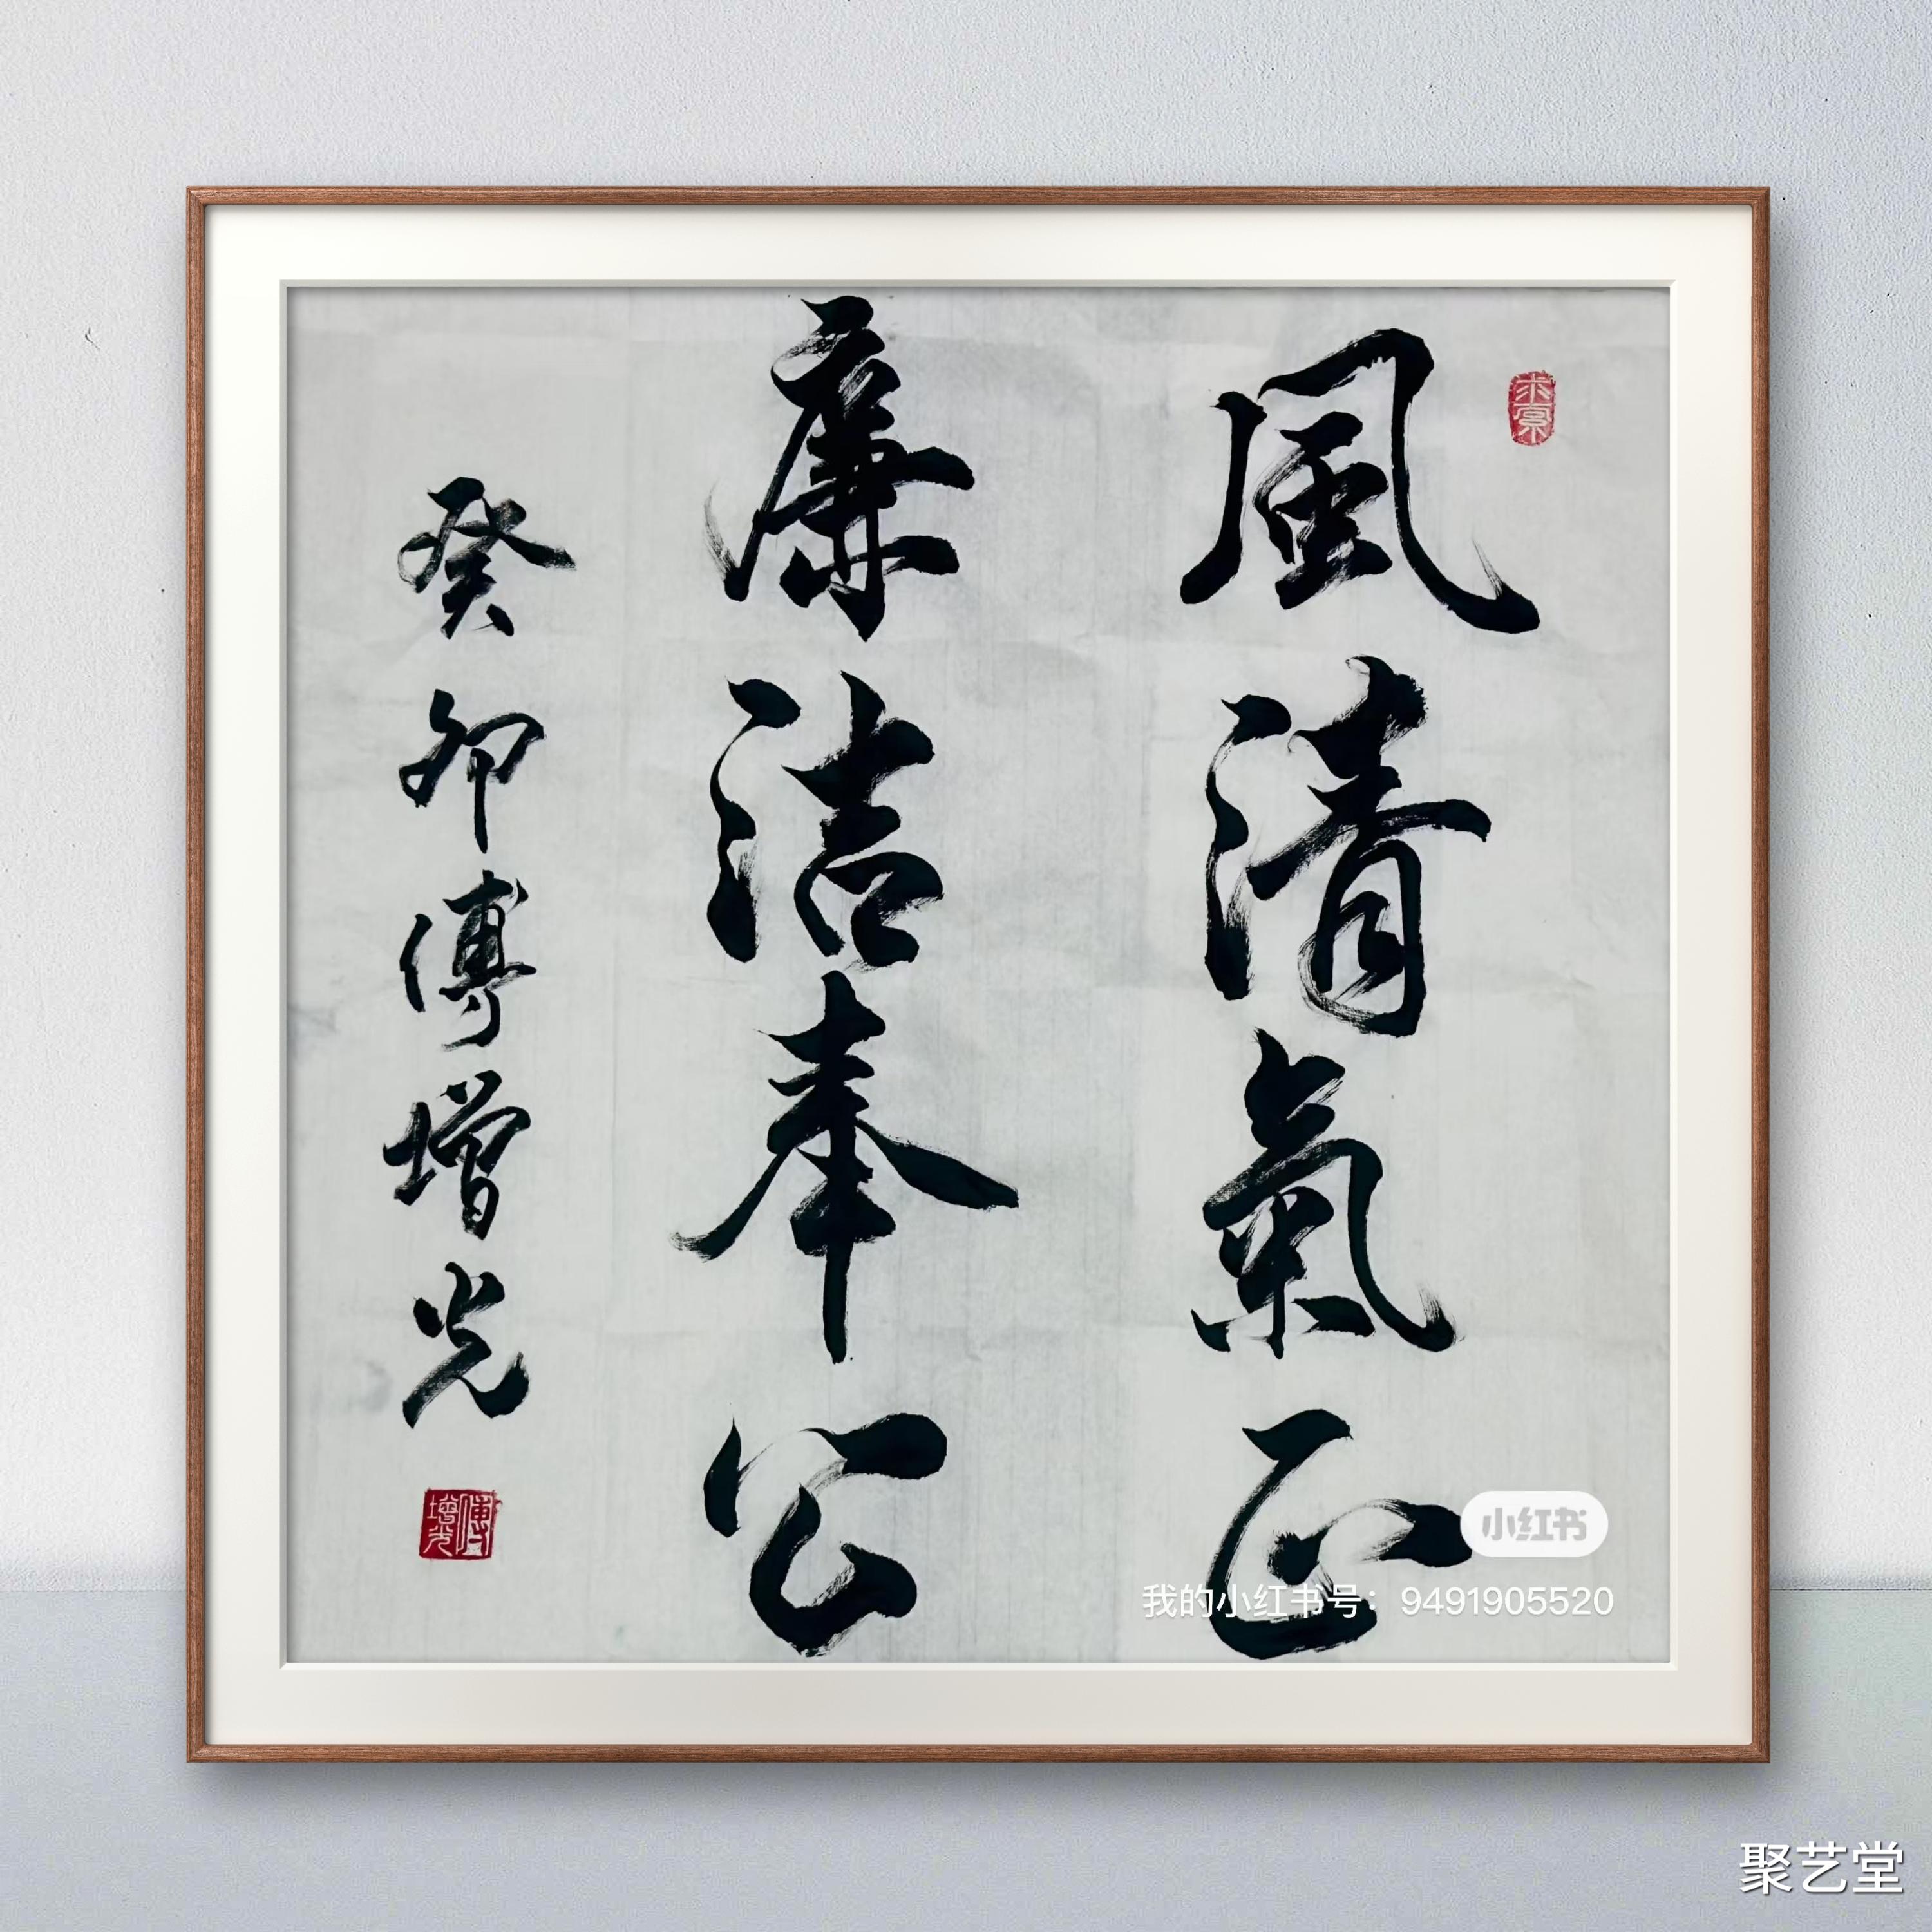 風清氣正
廉洁奉公
癸卯傅增光
傅增光
小红书
我的小红书号：9491905520
聚艺堂